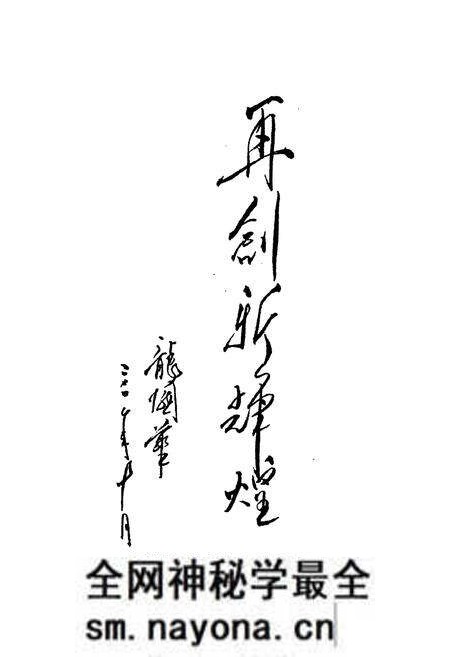 再創新輝煌
龍國華
年十月
全网神秘学最全
sm.nayona.cn